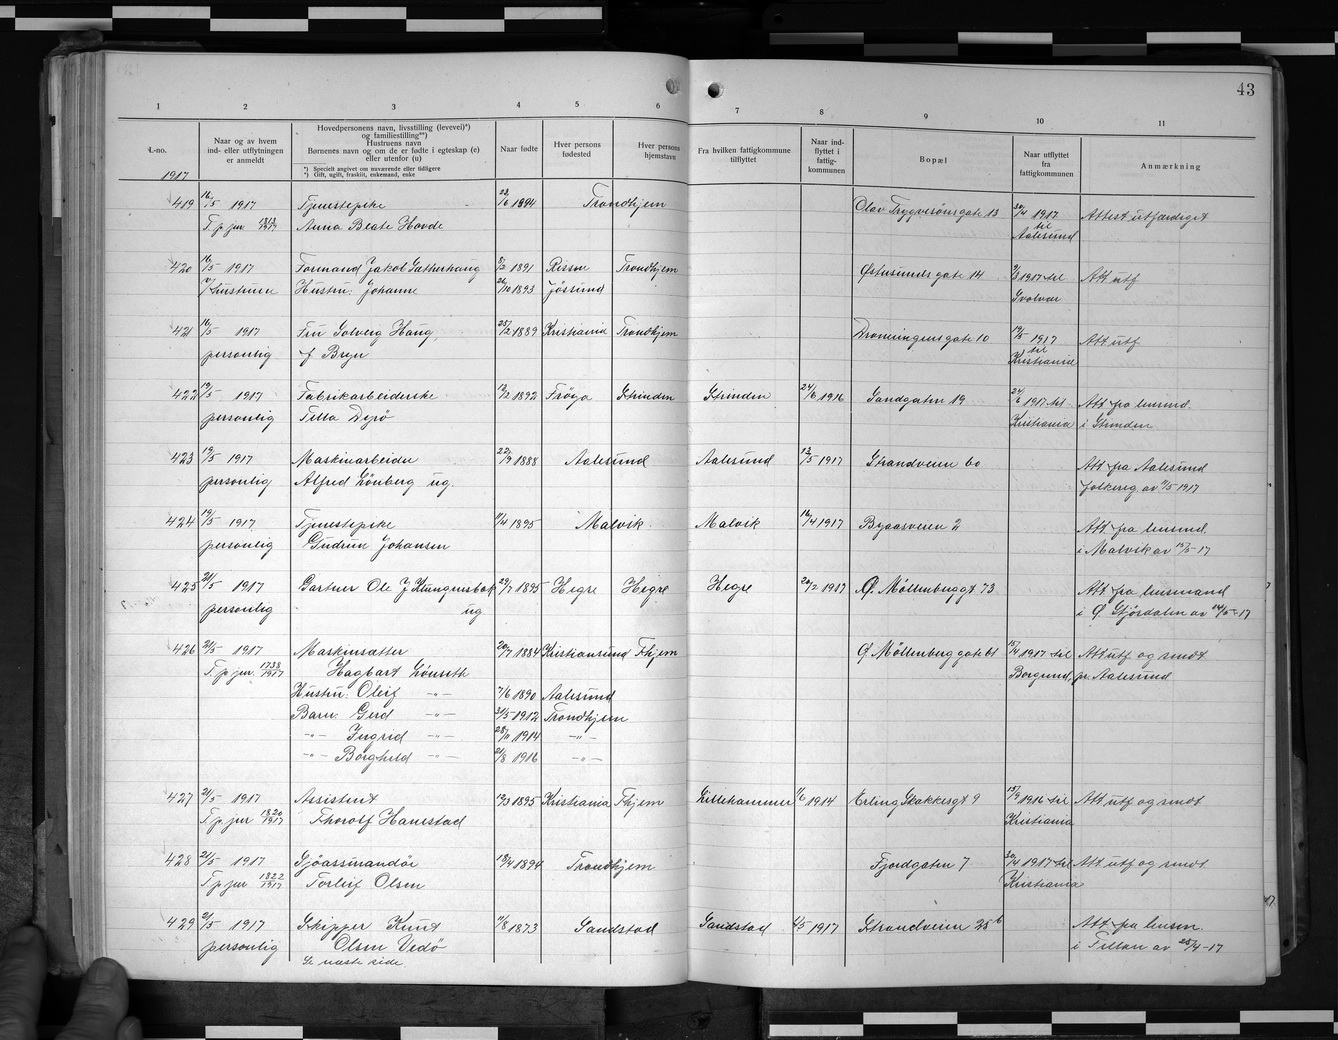 43
1 2 3 4 5 6 7 8 9 10 11
L-no.
1917
Naar og av hvem
ind- eller utflytningen
er anmeldt
Hovedpersonens navn, livsstilling (levevei)*)
og familiestilling**)
Hustruens navn
Børnenes navn og om de er fødte i egteskap (e)
eller utenfor (u)
*) Specielt angivet om nuværende eller tidligere
*) Gift, ugift, fraskilt, enkemand, enke
Naar fødte
Hver persons
fødested
Hver persons
hjemstavn
Fra hvilken fattigkommune
tilflyttet
Naar ind-
flyttet i
fattig-
kommunen
Bopæl
Naar utflyttet
fra
fattigkommunen
Anmærkning
419 16/5 1917 Tjenestepike 22/6 1894 Trondhjem Olav Trygvesønsgate 13 30/4 1917 Attest utfærdiget
T. p. jur 1313/1917 Anna Beate Hovde til
Aalesund
420 16/5 1917 Formand Jakob 1891 Rissen Trondhjem Østersundsgate 14 1917 til Att utf
v/ hustruen Hustru: Johanne 26/10 1893 Jøssund Svolvær
421 16/5 1917 Fru Solveig Haug 25/2 1889 Kristiania Trondhjem Dronningensgate 10 19/5 1917 Att utf
personlig f. Bryn til
Kristiania
422 19/5 1917 Fabrikarbeiderske 12/2 1892 Frøya Strinden Strinden 24/6 1916 Sandgaten 19 24/6 1917 til Att fra lensmd.
personlig Tella Dyrø Kristiania i Strinden
423 19/5 1917 Maskinarbeider 22/9 1888 Aalesund Aalesund 13/5 1917 Strandveien 60 Att fra Aalesund
personlig Alfred Lönberg ug. folkereg. av 11/5 1917
424 19/5 1917 Tjenestepike 11/4 1895 Malvik Malvik 16/4 1917 Byaasveien 2 Att fra lensmd.
personlig Gudrun Johansen i Malvik av 15/5-17
425 21/5 1917 Gartner Ole J 29/7 1895 Hegre Hegre Hegre 20/2 1917 Ø. Møllenberggt 73 Att fra lensmand
personlig ug i Ø. Stjørdalen av 14/5-17
426 21/5 1917 Maskinsætter 20/7 1884 Kristiansund Thjem Ø Møllenberg gate 61 15/4 1917 til Att utf og sendt
T. p. jur. 1738/1917 Hagbart Lönseth Borgund, pr. Aalesund
Hustru: Oleif -"- 7/6 1890 Aalesund
Barn: Gerd -"- 31/5 1912 Trondhjem
-"- Ingrid -"- 28/11 1914 -"-
-"- Borghild -"- 21/8 1916 -"-
427 21/5 1917 Assistent 12/3 1895 Kristiania Thjem Lillehammer 1/6 1914 Erling Skakkesgt 9 15/9 1916 til Att utf og sendt
T. p. jur 1820/1917 Thorolf Hanestad Kristiania
428 21/5 1917 Sjöassurandör 12/4 1894 Trondhjem Fjordgaten 7 30/4 1917 til Att utf og sendt
T. p. jur 1822/1917 Torleif Olsen Kristiania
429 21/5 1917 Skipper Knut 11/8 1873 Sandstad Sandstad 4/5 1917 Strandveien 25b Att fra lensm.
personlig Olsen Vedø i Fillan av 28/4-17
Se næste side